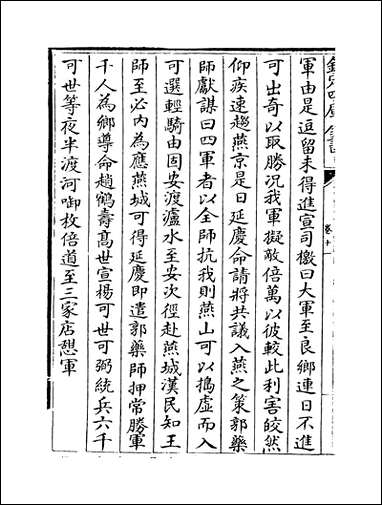 欽定四庫全書
軍由是逗留未得進宣司檄曰大軍至良鄉連日不進
可出奇以取勝況我軍擬敵倍萬以彼較此利害皎然
仰疾速趨燕京是日延慶命請將共議入燕之策郭藥
師獻謀曰四軍者以全師抗我則燕山可以搗虛而入
可選輕騎由固安渡瀘水至安次徑赴燕城漢民知王
師至必內為應燕城可得延慶即遣郭藥師押常勝軍
千人為鄉導命趙鶴壽高世宣楊可世可弼統兵六千
可世等夜半渡河啣枚倍道至三家店憩軍